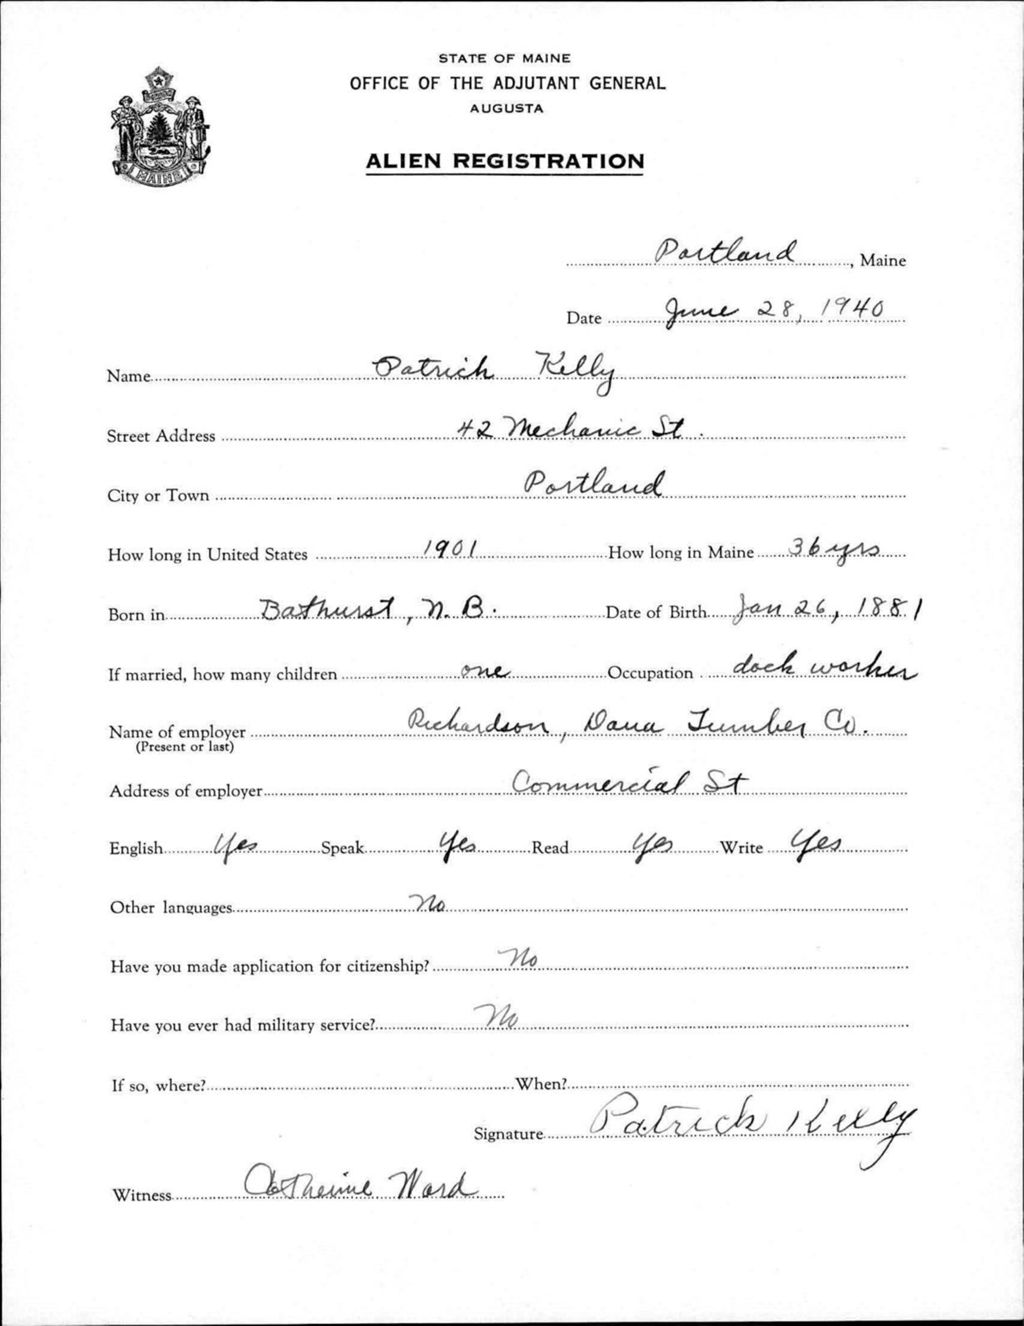 STATE OF MAINE
OFFICE OF THE ADJUTANT GENERAL
AUGUSTA
ALIEN REGISTRATION
MAINE
Portland, Maine
Date June 28, 1940
Name Patrick Kelly
Street Address 42 Mechanic St.
City or Town Portland
How long in United States 1901 How long in Maine 36 yrs
Born in Bathurst, N. B. Date of Birth Jan 26, 1881
If married, how many children one Occupation dock worker
Name of employer Richardson, Dana Lumber Co.
(Present or last)
Address of employer Commercial St
English Yes Speak Yes Read Yes Write Yes
Other languages No
Have you made application for citizenship? No
Have you ever had military service? No
If so, where? When?
Signature Patrick Kelly
Witness Catherine Ward